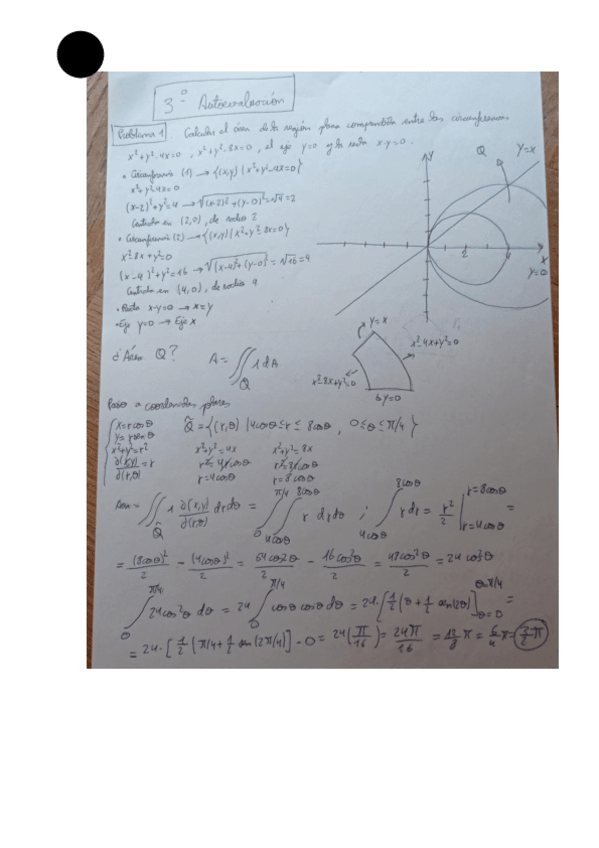 3º Autoevaluación
Problema 1 Calcular el área de la región plana comprendida entre las circunferencias
x²+y²-4x=0 , x²+y²-8x=0 , el eje y=0 y la recta x-y=0.
• Circunferencia (1) → {(x,y) | x²+y²-4x=0}
x²+y²-4x=0
(x-2)²+y²=4 → √(x-2)²+(y-0)²=√4=2
Centrada en (2,0), de radio 2
• Circunferencia (2) → {(x,y) | x²+y²-8x=0}
x²-8x+y²=0
(x-4)²+y²=16 → √(x-4)²+(y-0)²=√16=4
Centrada en (4,0), de radio 4
• Recta x-y=0 → x=y
• Eje y=0 → Eje x
Y
Q
y=x
2
4
X
y=0
¿Área Q?
A=∬ 1 dA
Q
y=x
x²-4x+y²=0
x²-8x+y²=0
y=0
Paso a coordenadas polares
x=rcosθ
y=rsenθ
x²+y²=r²
∂(x,y)/∂(r,θ)=r
Q̃={(r,θ) | 4cosθ≤r≤8cosθ , 0≤θ≤π/4}
x²+y²=4x x²+y²=8x
r²=4rcosθ r²=8rcosθ
r=4cosθ r=8cosθ
Area=∬Q̃ 1 ∂(x,y)/∂(r,θ) drdθ = ∫0^π/4 ∫4cosθ^8cosθ r drdθ ; ∫4cosθ^8cosθ r dr = r²/2 | r=8cosθ r=4cosθ =
= (8cosθ)²/2 - (4cosθ)²/2 = 64cos²θ/2 - 16cos²θ/2 = 48cos²θ/2 = 24cos²θ
∫0^π/4 24cos²θ dθ = 24 ∫0^π/4 cosθcosθ dθ = 24·[1/2(θ+1/2 sen(2θ)]θ=0^θ=π/4 =
= 24·[1/2(π/4+1/2 sen(2π/4)] - 0 = 24(π/16) = 24π/16 = 12/8 π = 6/4 π = 3/2 π